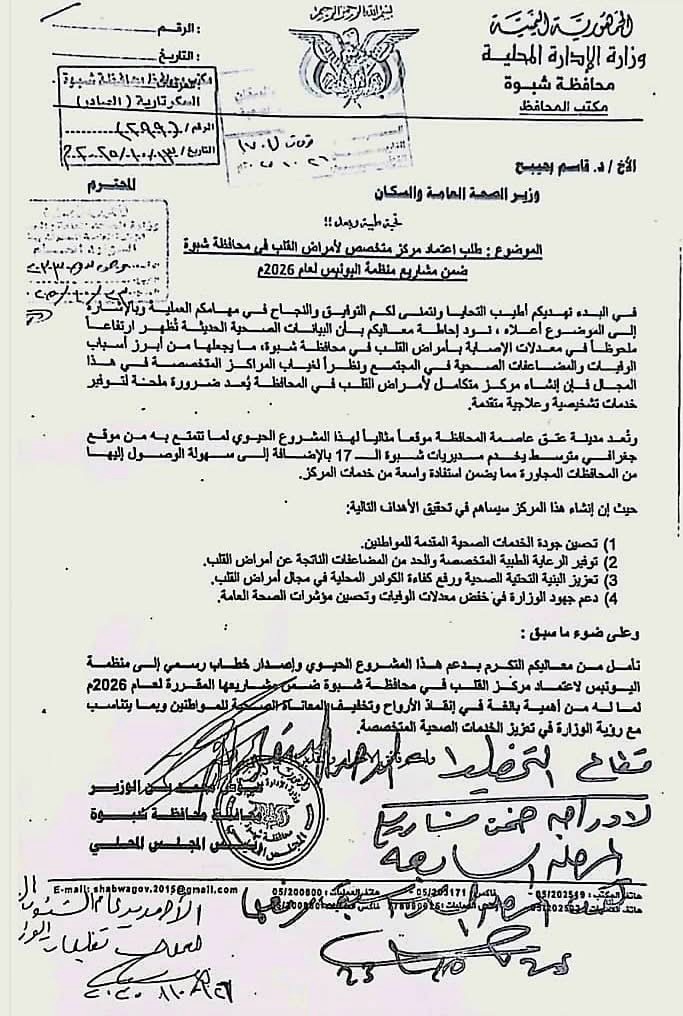 بسم الله الرحمن الرحيم
الجمهورية اليمنية
وزارة الإدارة المحلية
محافظة شبوة
مكتب المحافظ
الرقم :
التاريخ :
السكرتارية (الصادر)
الرقم / (٢٩٩٠)
التاريخ / ١٣ / ١٠ / ٢٠٢٥
الأخ / د. قاسم بحيبح
المحترم
وزير الصحة العامة والسكان
تحية طيبة وبعد !!
الموضوع : طلب اعتماد مركز متخصص لأمراض القلب في محافظة شبوة
ضمن مشاريع منظمة اليونبس لعام 2026م
في البدء نهديكم أطيب التحايا ونتمنى لكم التوفيق والنجاح في مهامكم العملية وبالإشارة
إلى الموضوع أعلاه ، نود إحاطة معاليكم بأن البيانات الصحية الحديثة تُظهر ارتفاعاً
ملحوظاً في معدلات الإصابة بأمراض القلب في محافظة شبوة، ما يجعلها من أبرز أسباب
الوفيات والمضاعفات الصحية في المجتمع ونظراً لغياب المراكز المتخصصة في هذا
المجال فإن إنشاء مركز متكامل لأمراض القلب في المحافظة يُعد ضرورة ملحنة لتوفير
خدمات تشخيصية وعلاجية متقدمة.
وتُعد مدينة عتق عاصمة المحافظة موقعاً مثالياً لهذا المشروع الحيوي لما تتمتع به من موقع
جغرافي متوسط يخدم مديريات شبوة الـ 17 بالإضافة إلى سهولة الوصول إليها
من المحافظات المجاورة مما يضمن استفادة واسعة من خدمات المركز.
حيث إن إنشاء هذا المركز سيساهم في تحقيق الأهداف التالية:
1) تحسين جودة الخدمات الصحية المقدمة للمواطنين.
2) توفير الرعاية الطبية المتخصصة والحد من المضاعفات الناتجة عن أمراض القلب.
3) تعزيز البنية التحتية الصحية ورفع كفاءة الكوادر المحلية في مجال أمراض القلب.
4) دعم جهود الوزارة في خفض معدلات الوفيات وتحسين مؤشرات الصحة العامة.
وعلى ضوء ما سبق :
نأمل من معاليكم التكرم بدعم هذا المشروع الحيوي وإصدار خطاب رسمي إلى منظمة
اليونبس لاعتماد مركز القلب في محافظة شبوة ضمن مشاريعها المقررة لعام 2026م
لما له من أهمية بالغة في إنقاذ الأرواح وتخفيف المعاناة الصحية للمواطنين وبما يتناسب
مع رؤية الوزارة في تعزيز الخدمات الصحية المتخصصة.
قطاع التخطيط
لادراجه ضمن مشاريع
المرحلة السابعة
عوض محمد بن الوزير
محافظ محافظة شبوة
رئيس المجلس المحلي
E-mail: shabwagov.2015@gmail.com
هاتف المكتب : 05/202519
فاكس : 05/203171
هاتف العمليات : 05/200800
23 10 25